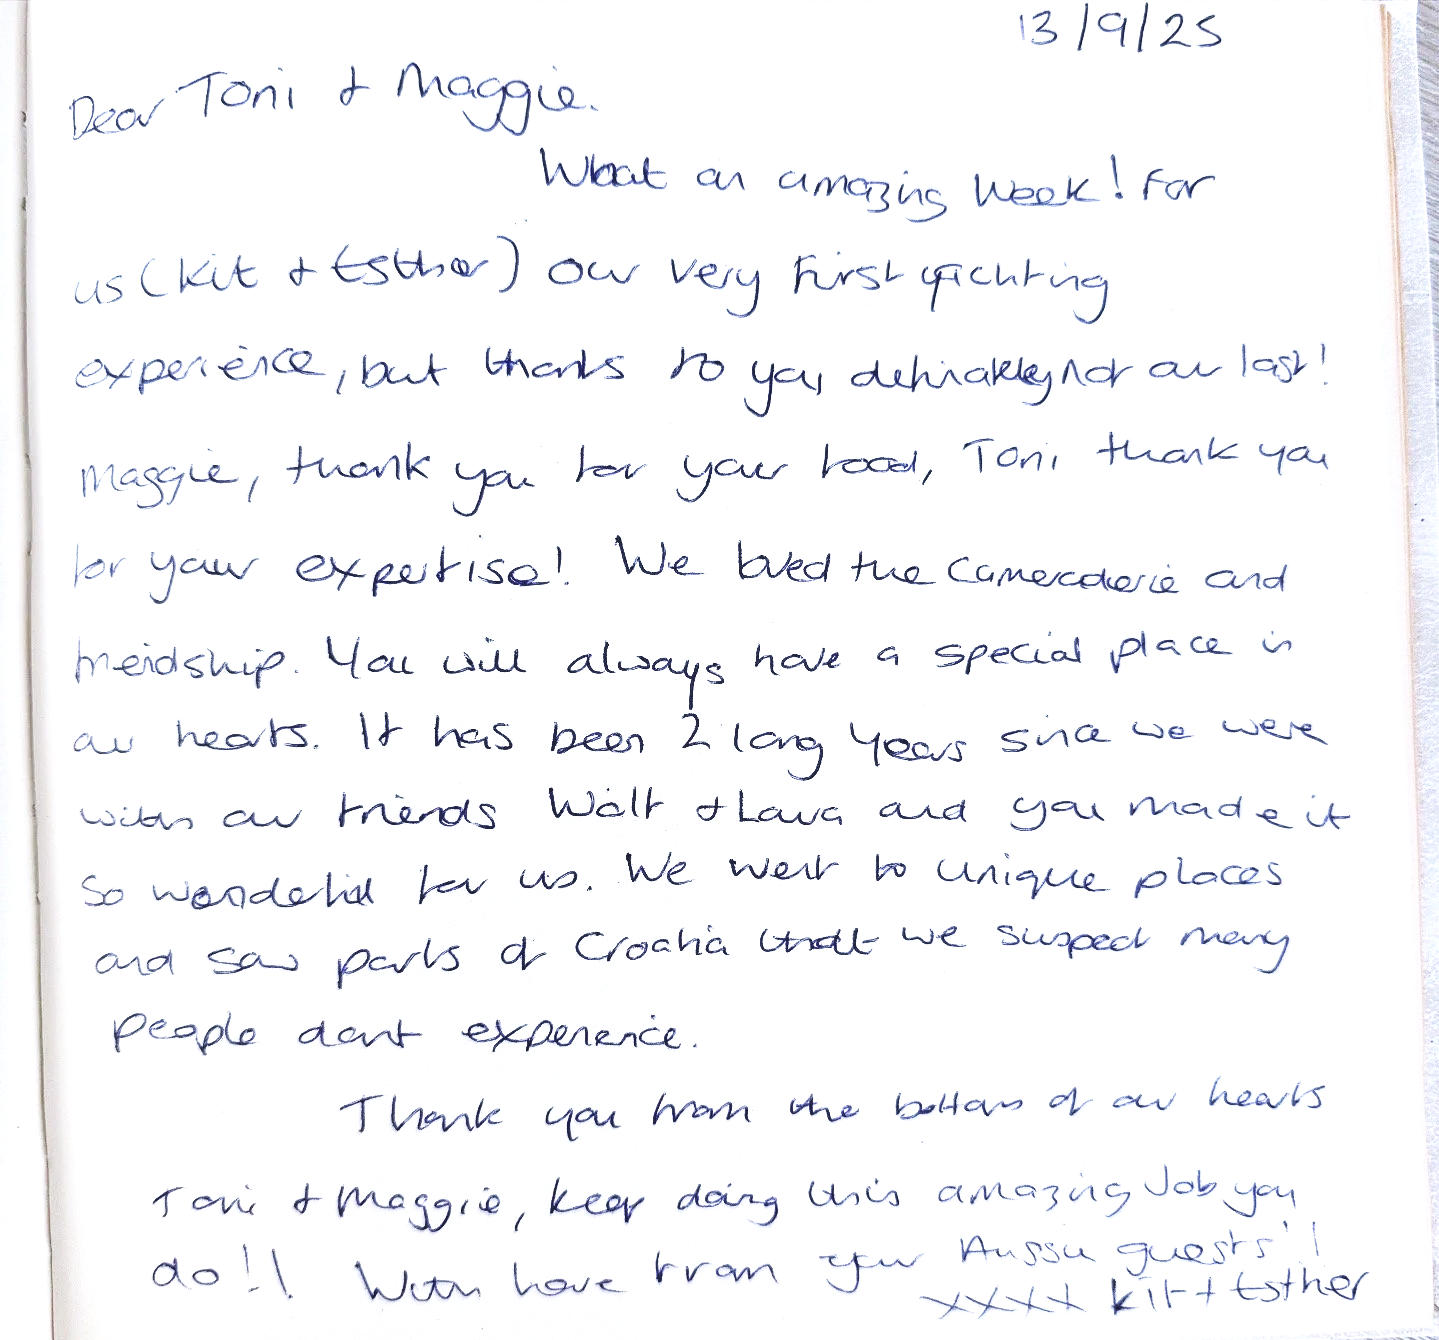 13/9/25
Dear Toni & Maggie.
What an amazing week! For
us (Kit & Esther) our very first yachting
experience, but thanks to you, definately not our last!
Maggie, thank you for your food, Toni thank you
for your expertise! We loved the cameraderie and
freidship. You will always have a special place in
our hearts. It has been 2 long years since we were
with our friends Walt & Laura and you made it
so wonderful for us. We went to unique places
and saw parts of Croatia that we suspect many
people dont experience.
Thank you from the bottom of our hearts
Toni & Maggie, keep doing this amazing job you
do!! With love from your Aussie guests!!
xxxx Kit & Esther